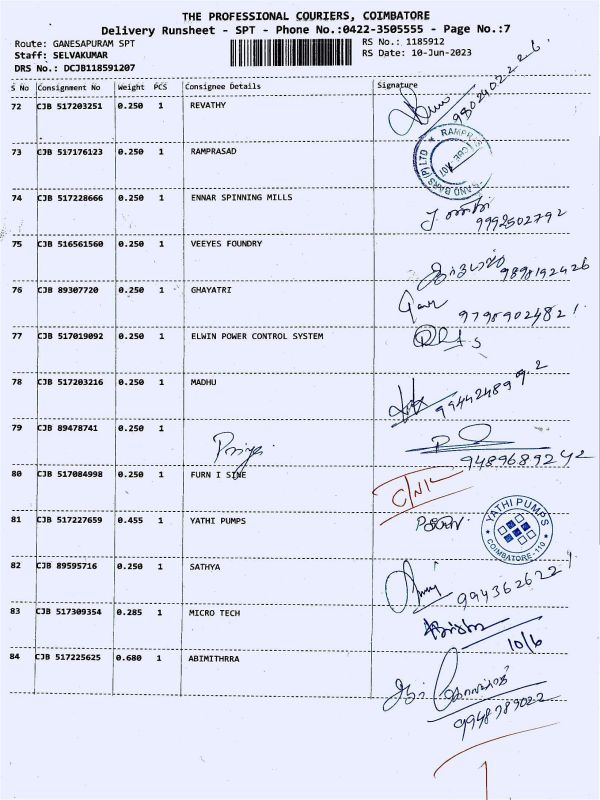 THE PROFESSIONAL COURIERS, COIMBATORE
Delivery Runsheet - SPT - Phone No.:0422-3505555 - Page No.:7
Route: GANESAPURAM SPT RS No.: 1185912
Staff: SELVAKUMAR RS Date: 10-Jun-2023
DRS No.: DCJB118591207
S No Consignment No Weight PCS Consignee Details Signature
72 CJB 517203251 0.250 1 REVATHY
73 CJB 517176123 0.250 1 RAMPRASAD
74 CJB 517228666 0.250 1 ENNAR SPINNING MILLS
9992502792
75 CJB 516561560 0.250 1 VEEYES FOUNDRY
9898192426
76 CJB 89307720 0.250 1 GHAYATRI
97989024821
77 CJB 517019092 0.250 1 ELWIN POWER CONTROL SYSTEM
78 CJB 517203216 0.250 1 MADHU
79 CJB 89478741 0.250 1
Priya
9489689242
80 CJB 517084998 0.250 1 FURN I SINE
81 CJB 517227659 0.455 1 YATHI PUMPS
YATHI PUMPS
COIMBATORE-110
82 CJB 89595716 0.250 1 SATHYA
83 CJB 517309354 0.285 1 MICRO TECH
10/6
84 CJB 517225625 0.680 1 ABIMITHRRA
9948789022